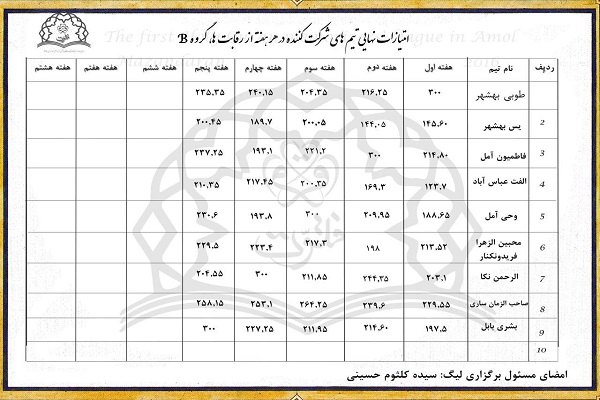 The first league in Amol
2016
امتیازات نهایی تیم های شرکت کننده در هر هفته از رقابت ها، گروه B
ردیف نام تیم هفته اول هفته دوم هفته سوم هفته چهارم هفته پنجم هفته ششم هفته هفتم هفته هشتم
طوبی بهشهر ۳۰۰ ۲۱۶.۲۵ ۲۰۴.۳۵ ۲۴۰.۱۵ ۲۳۵.۳۵
2 یس بهشهر ۱۴۵.۶۰ ۱۴۴.۰۵ ۲۰۰.۰۵ ۱۸۹.۷ ۲۰۰.۴۵
3 فاطمیون آمل ۲۱۴.۸۰ ۳۰۰ ۲۲۱.۲ ۱۹۳.۱ ۲۳۷.۲۵
4 الفت عباس آباد ۱۲۳.۷ ۱۶۹.۳ ۲۰۰.۳۵ ۲۱۷.۴۵ ۲۱۰.۳۵
5 وحی آمل ۱۸۸.۶۵ ۲۰۹.۹۵ ۳۰۰ ۱۹۳.۸ ۲۳۰.۶
6 محبین الزهرا ۲۱۳.۵۲ ۱۹۸ ۲۱۷.۳ ۲۲۳.۴ ۲۲۹.۵
فریدونکنار
7 الرحمن نکا ۲۰۳.۱ ۲۴۴.۳۵ ۲۱۱.۸۵ ۳۰۰ ۲۰۴.۵۵
8 صاحب الزمان ساری ۲۲۹.۵۵ ۲۳۹.۶ ۲۶۴.۲۵ ۲۵۳.۱ ۲۵۸.۱۵
9 بشری بابل ۱۹۷.۵ ۲۱۴.۶۰ ۲۱۱.۹۵ ۲۲۷.۲۵ ۳۰۰
10
امضای مسئول برگزاری لیگ: سیده کلثوم حسینی